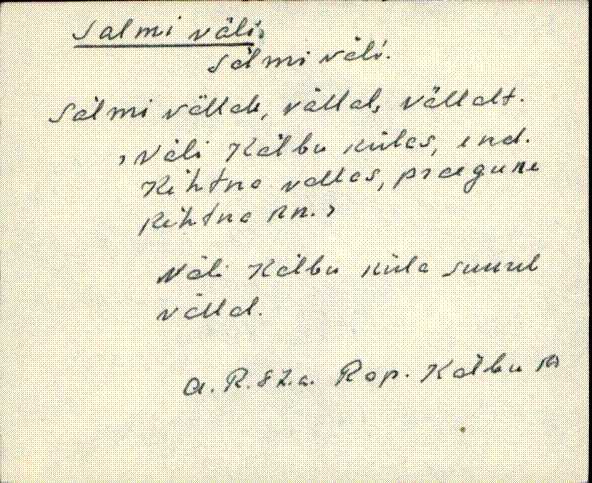 Salmi väli.
Sälmi väli.
Sälmi vällale, vällal, vällalt.
, Väli Kälbu külas, end.
Kehtna vallas, praegune
Kehtna rn. ,
Väli Kälbu küla suurel
vällal.
A. R. 82.a. Rap. Kälbu k